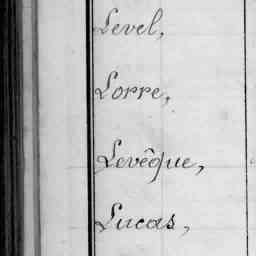 Level,
Lorre,
Levêque,
Lucas,